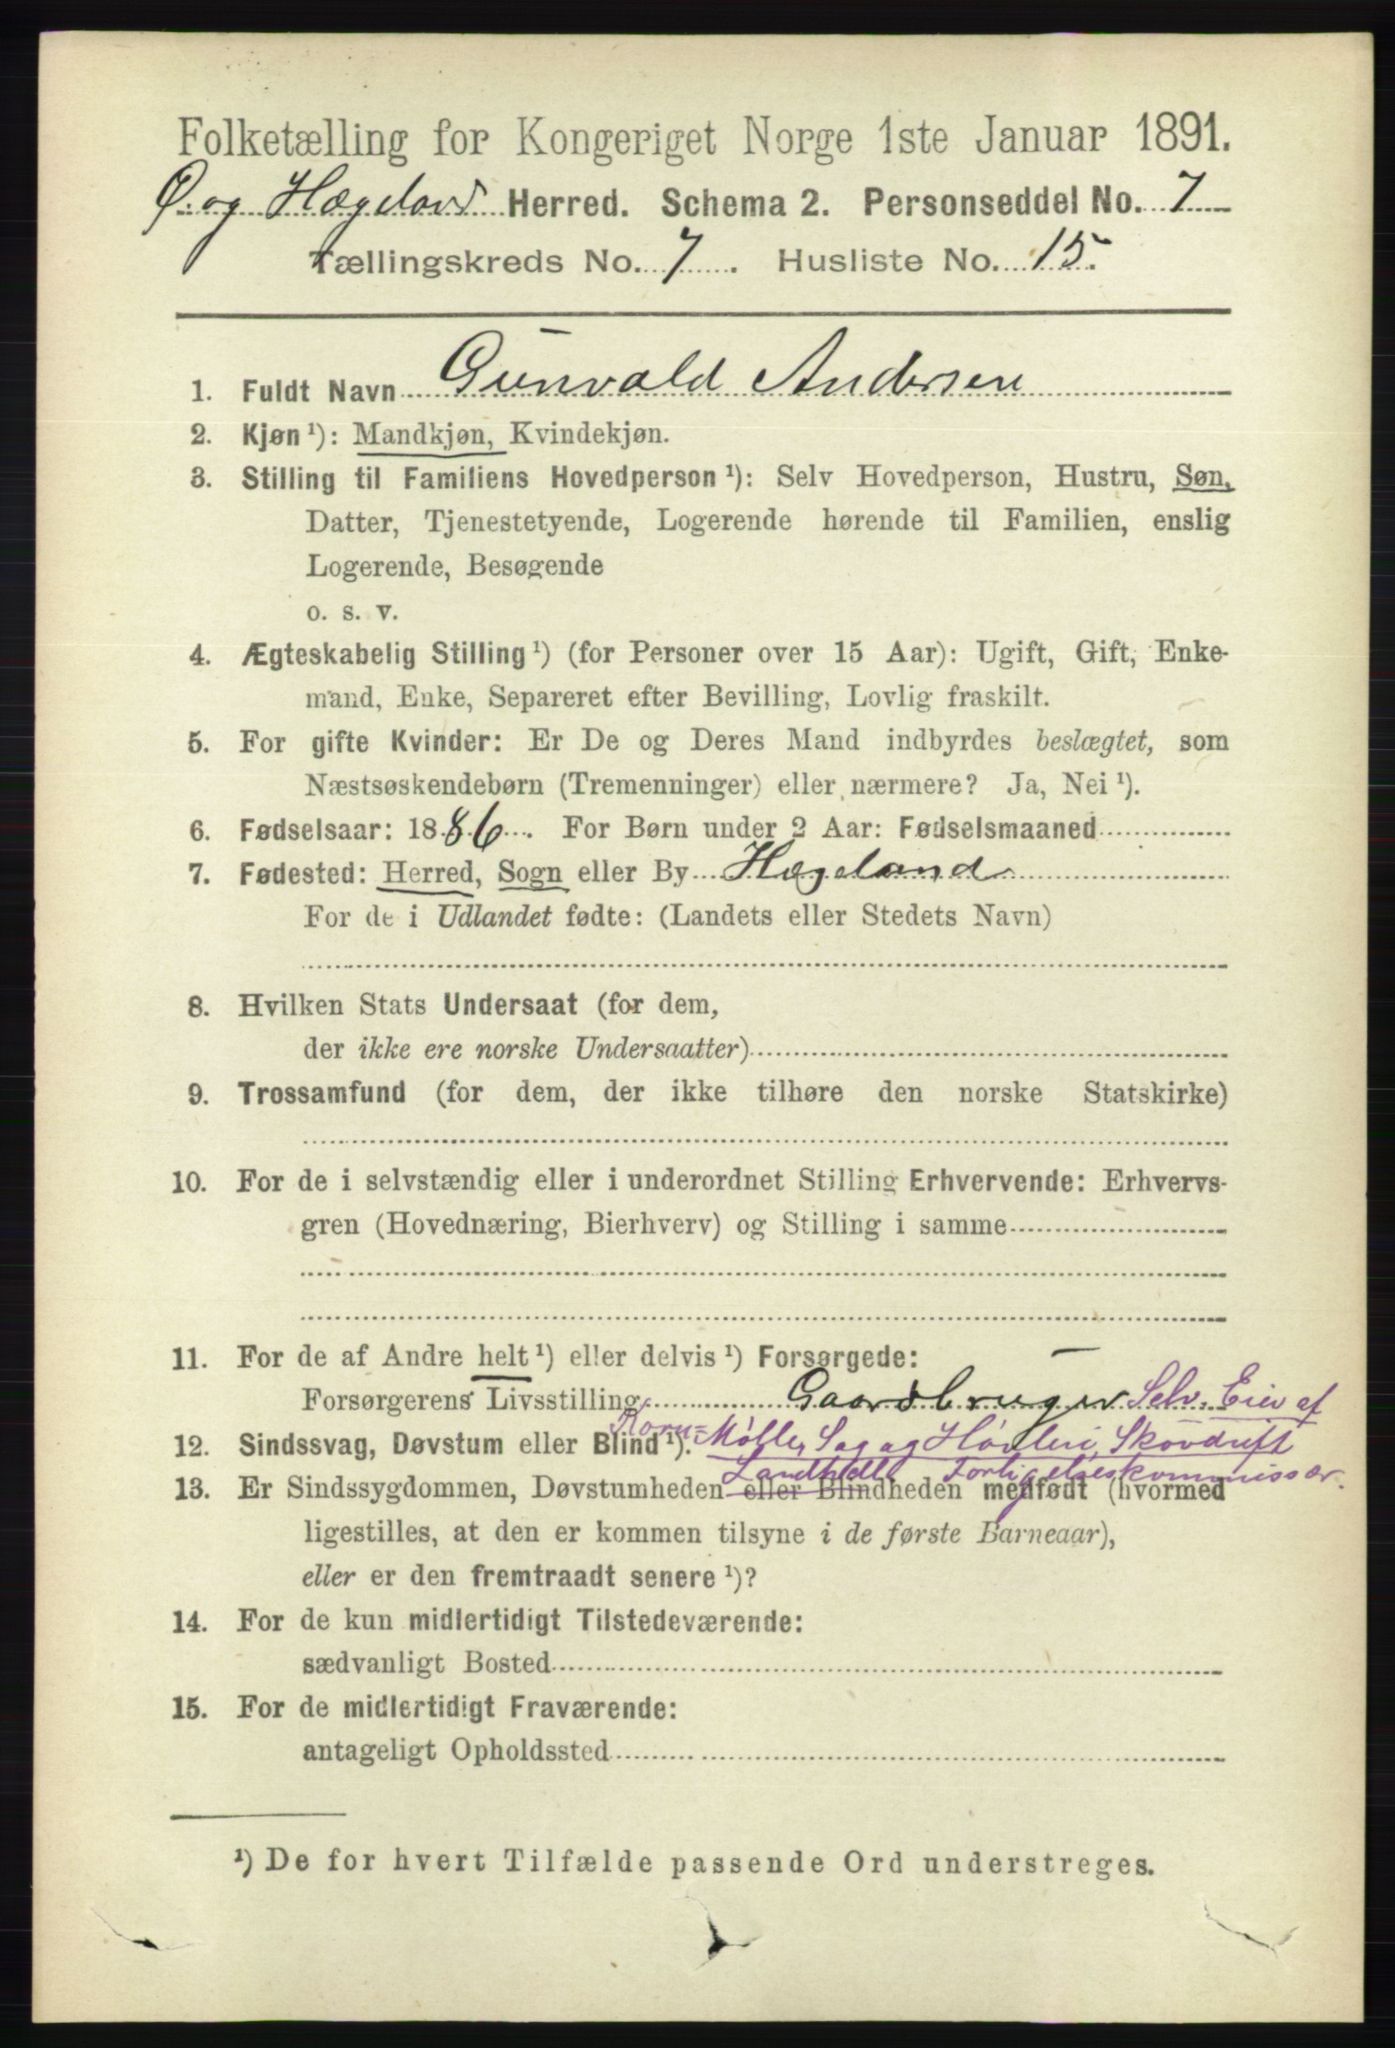 Folketælling for Kongeriget Norge 1ste Januar 1891.
Ø. og Hægeland Herred. Schema 2. Personseddel No. 7
Tællingskreds No. 7. Husliste No. 15.
1. Fuldt Navn Gunvald Andersen
2. Kjøn ¹): Mandkjøn, Kvindekjøn.
3. Stilling til Familiens Hovedperson ¹): Selv Hovedperson, Hustru, Søn,
Datter, Tjenestetyende, Logerende hørende til Familien, enslig
Logerende, Besøgende
o. s. v.
4. Ægteskabelig Stilling ¹) (for Personer over 15 Aar): Ugift, Gift, Enke-
mand, Enke, Separeret efter Bevilling, Lovlig fraskilt.
5. For gifte Kvinder: Er De og Deres Mand indbyrdes beslægtet, som
Næstsøskendebørn (Tremenninger) eller nærmere? Ja, Nei ¹).
6. Fødselsaar: 1886. For Børn under 2 Aar: Fødselsmaaned
7. Fødested: Herred, Sogn eller By Hægeland
For de i Udlandet fødte: (Landets eller Stedets Navn)
8. Hvilken Stats Undersaat (for dem,
der ikke ere norske Undersaatter)
9. Trossamfund (for dem, der ikke tilhøre den norske Statskirke)
10. For de i selvstændig eller i underordnet Stilling Erhvervende: Erhvervs-
gren (Hovednæring, Bierhverv) og Stilling i samme
11. For de af Andre helt ¹) eller delvis ¹) Forsørgede:
Forsørgerens Livsstilling Gaardbruger Selv. Eier af
Korn-Mølle, Sag og Høvleri, Skovdrift
12. Sindssvag, Døvstum eller Blind ¹).
Landhdl. Forligelseskommissær.
13. Er Sindssygdommen, Døvstumheden eller Blindheden medfødt (hvormed
ligestilles, at den er kommen tilsyne i de første Barneaar),
eller er den fremtraadt senere ¹)?
14. For de kun midlertidigt Tilstedeværende:
sædvanligt Bosted
15. For de midlertidigt Fraværende:
antageligt Opholdssted
¹) De for hvert Tilfælde passende Ord understreges.